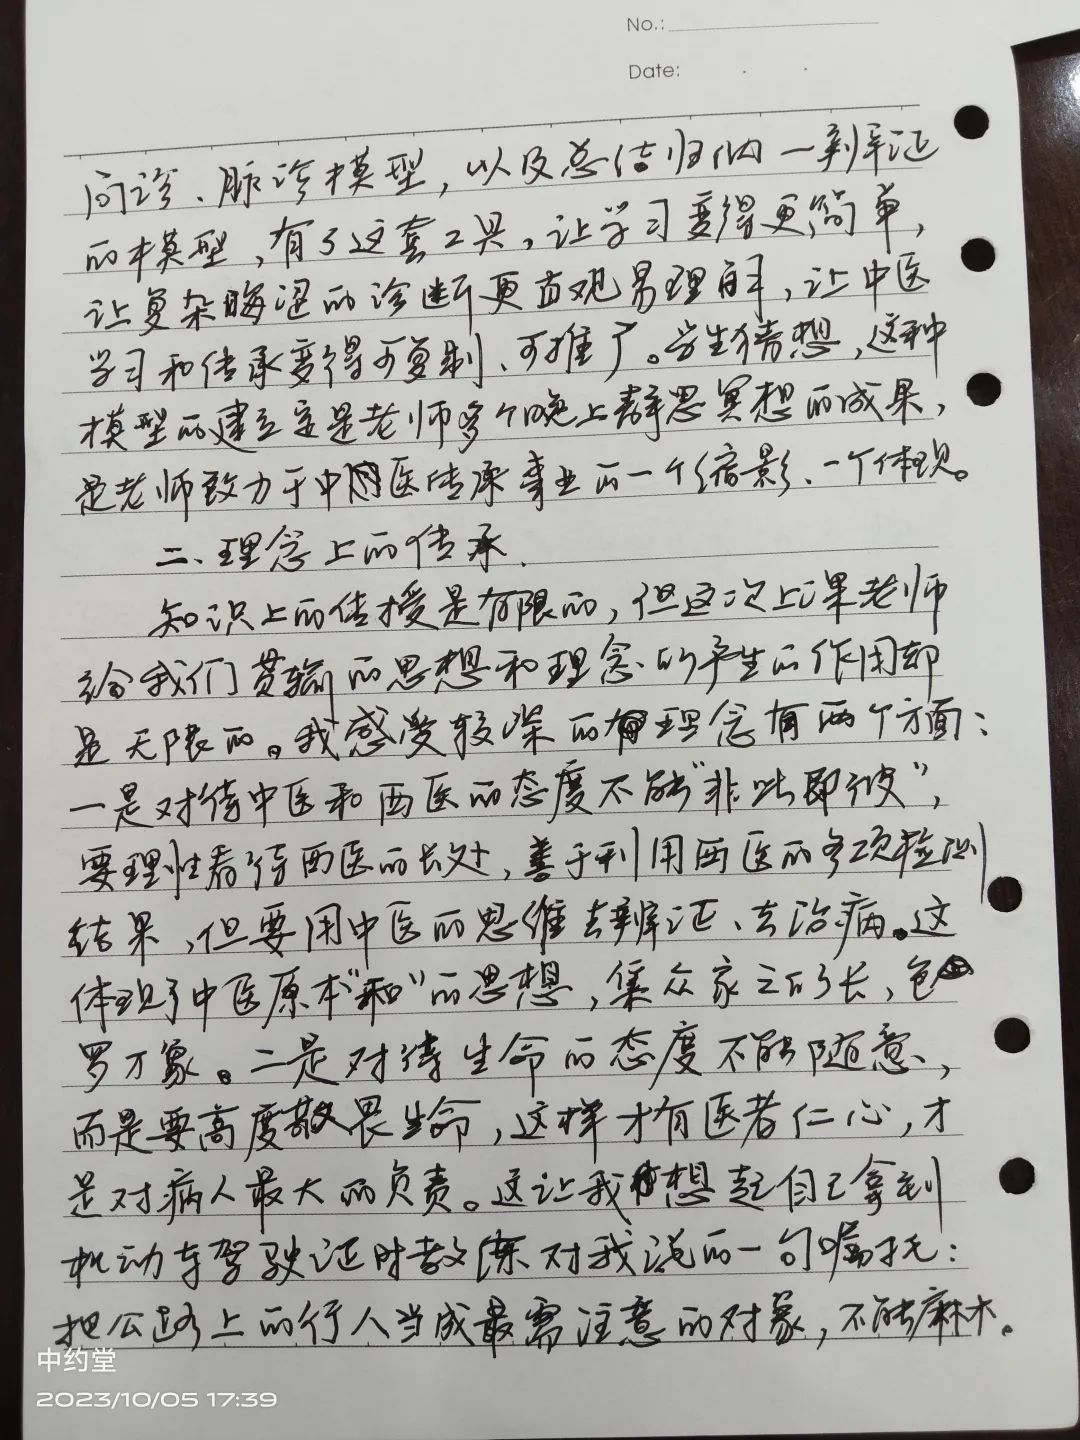 No.:
Date:
问诊、脉诊模型，以及总结归纳一到辨证
的模型，有了这套工具，让学习变得更简单，
让复杂晦涩的诊断更直观易理解，让中医
学习和传承变得可复制、可推广。学生猜想，这种
模型的建立定是老师多个晚上群思冥想的成果，
是老师致力于中医传承事业的一个缩影、一个体现。
二、理念上的传承.
知识上的传授是有限的，但这次上课老师
给我们贯输的思想和理念的产生的作用却
是无限的。我感受较深的理念有两个方面：
一是对待中医和西医的态度不能“非此即彼”，
要理性看待西医的长处，善于利用西医的各项检测
结果，但要用中医的思维去辨证、去治病。这
体现了中医原本“和”的思想，集众家之的长，包
罗万象。二是对待生命的态度不能随意、，
而是要高度敬畏生命，这样才有医者仁心，才
是对病人最大的负责。这让我想起自己拿到
机动车驾驶证时教练对我说的一句嘱托：
把公路上的行人当成最需注意的对象，不能麻木。
中约堂
2023/10/05 17:39